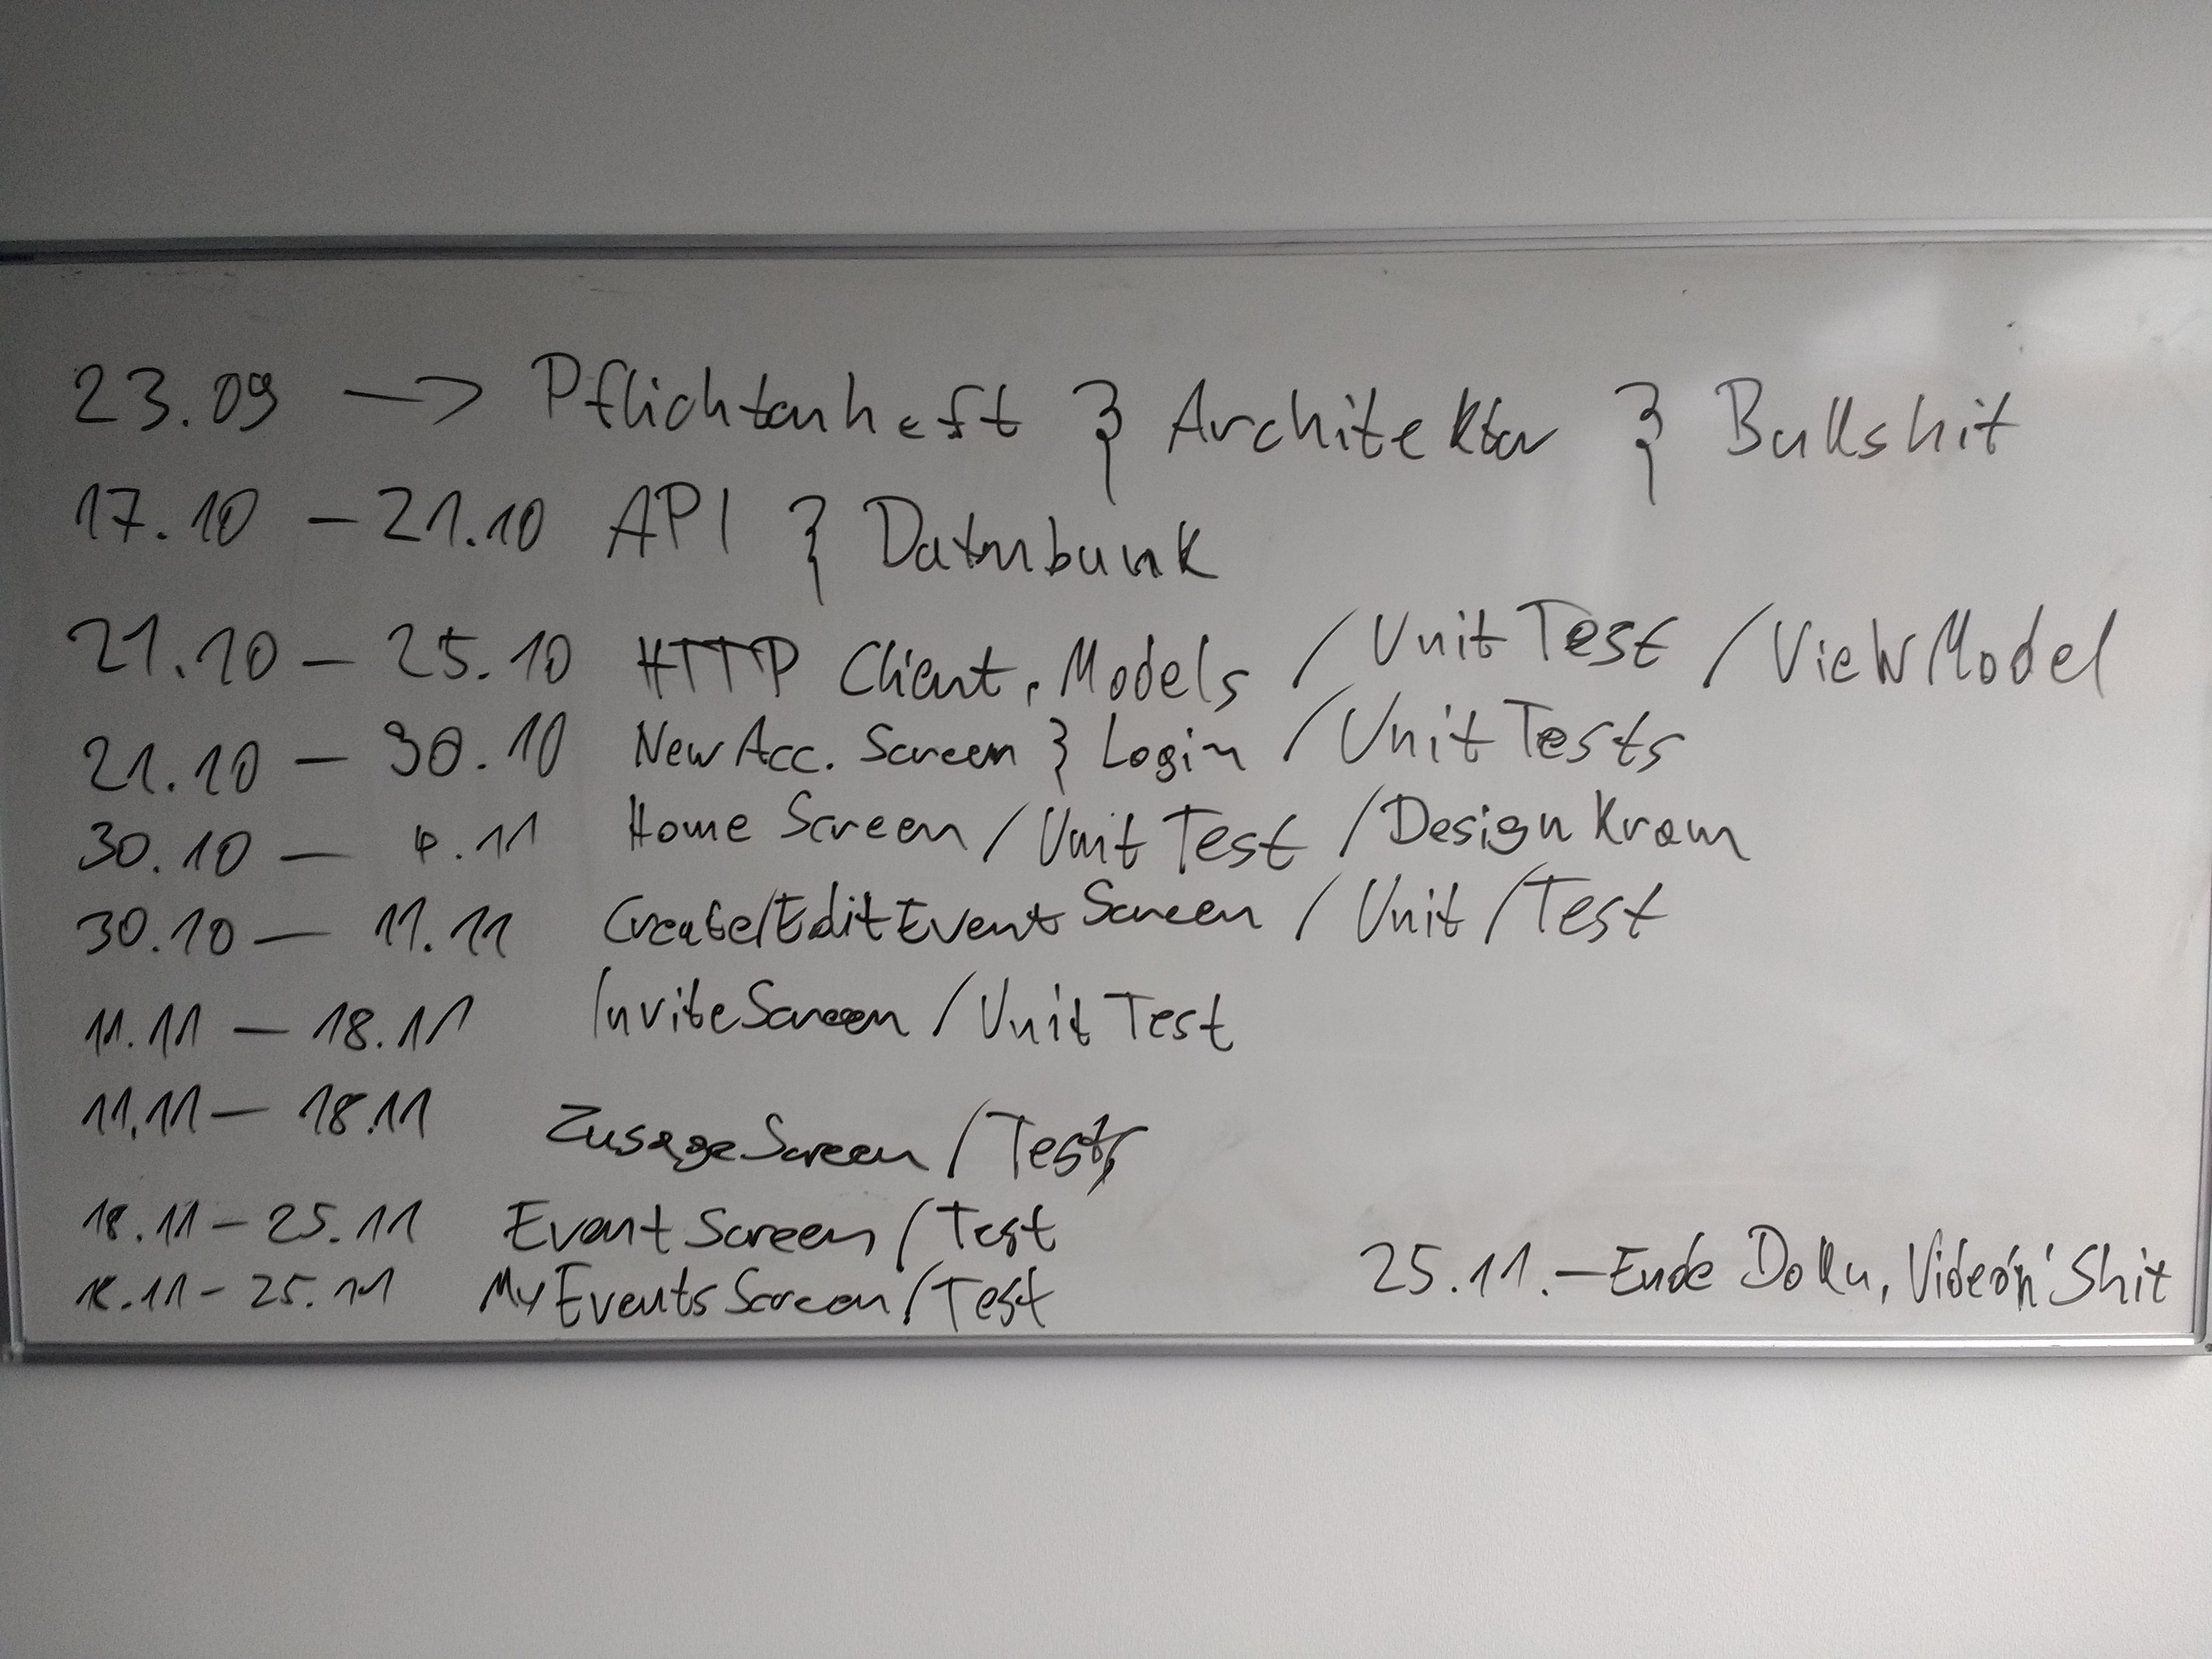 23.09 —> Pflichtenheft & Architektur & Bullshit
17.10 – 21.10 API & Datenbank
21.10 – 25.10 HTTP Client, Models / Unit Test / ViewModel
21.10 – 30.10 New Acc. Screen & Login / Unit Tests
30.10 – 4.11 Home Screen / Unit Test / Design Kram
30.10 – 11.11 Create/Edit Event Screen / Unit / Test
11.11 – 18.11 Invite Screen / Unit Test
11.11 – 18.11 Zusage Screen / Tests
18.11 – 25.11 Event Screen / Test
18.11 – 25.11 My Events Screen / Test
25.11. – Ende Doku, Video'n' Shit